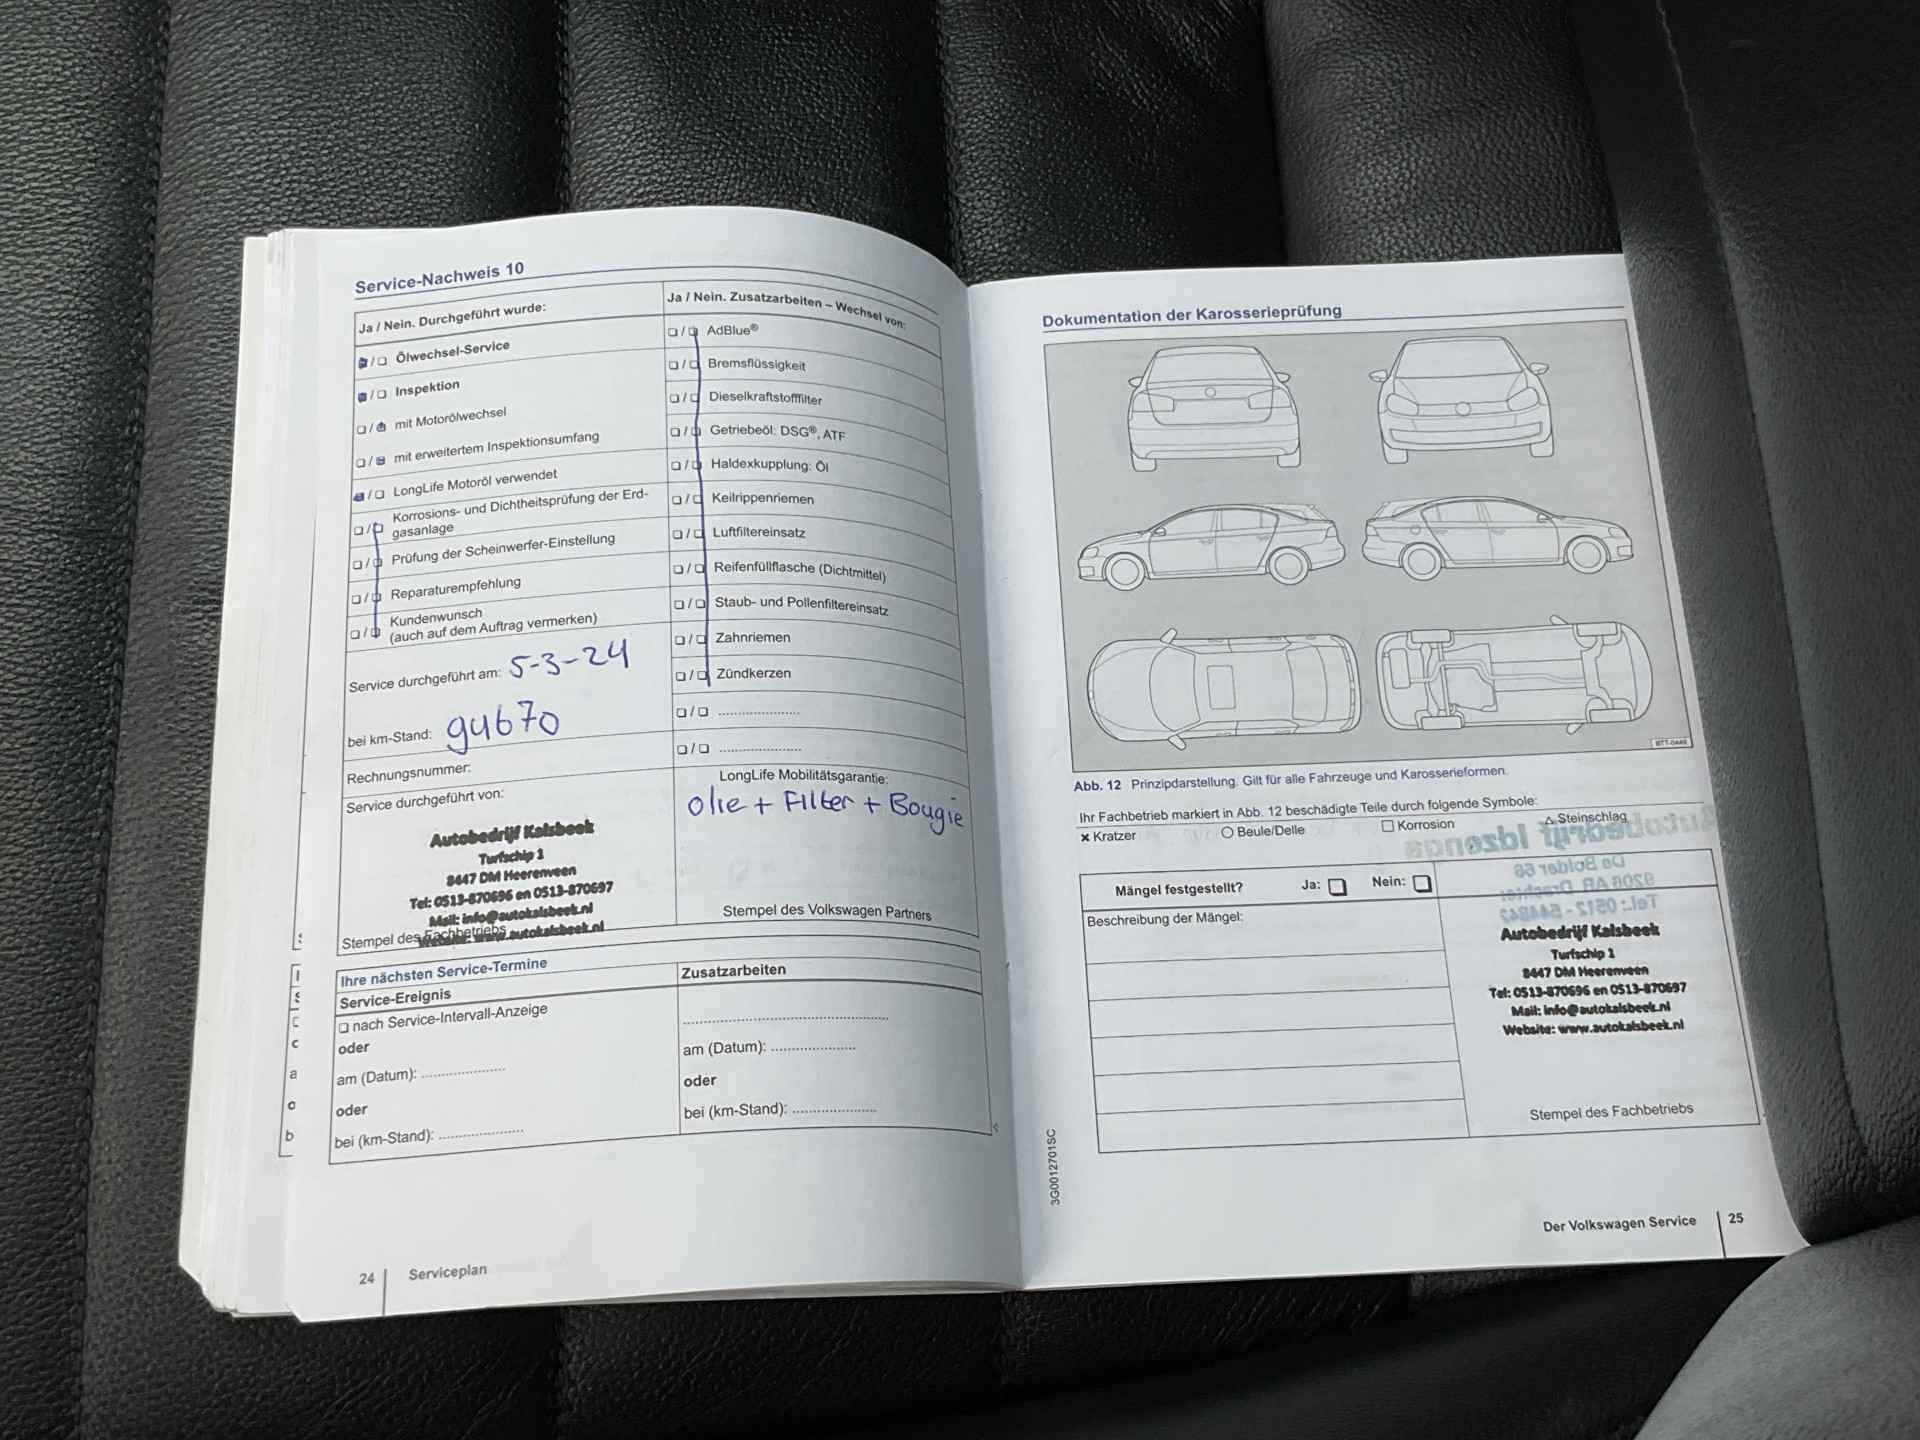 Service-Nachweis 10
Ja / Nein. Durchgeführt wurde:
Ölwechsel-Service
Inspektion
mit Motorölwechsel
mit erweitertem Inspektionsumfang
LongLife Motoröl verwendet
Korrosions- und Dichtheitsprüfung der Erd-
gasanlage
Prüfung der Scheinwerfer-Einstellung
Reparaturempfehlung
Kundenwunsch
(auch auf dem Auftrag vermerken)
Service durchgeführt am: 5-3-24
bei km-Stand: 94670
Rechnungsnummer:
Service durchgeführt von:
Autobedrijf Kalsbeek
Turfschip 1
8447 DM Heerenveen
Tel: 0513-870696 en 0513-870697
Mail: info@autokalsbeek.nl
Website: www.autokalsbeek.nl
Stempel des Fachbetriebs
Ja / Nein. Zusatzarbeiten – Wechsel von:
AdBlue®
Bremsflüssigkeit
Dieselkraftstofffilter
Getriebeöl: DSG®, ATF
Haldexkupplung: Öl
Keilrippenriemen
Luftfiltereinsatz
Reifenfüllflasche (Dichtmittel)
Staub- und Pollenfiltereinsatz
Zahnriemen
Zündkerzen
LongLife Mobilitätsgarantie:
Olie + Filter + Bougie
Stempel des Volkswagen Partners
Ihre nächsten Service-Termine
Service-Ereignis
nach Service-Intervall-Anzeige
oder
am (Datum):
oder
bei (km-Stand):
Zusatzarbeiten
am (Datum):
oder
bei (km-Stand):
24 Serviceplan
Dokumentation der Karosserieprüfung
Abb. 12 Prinzipdarstellung. Gilt für alle Fahrzeuge und Karosserieformen.
Ihr Fachbetrieb markiert in Abb. 12 beschädigte Teile durch folgende Symbole:
× Kratzer ○ Beule/Delle □ Korrosion △ Steinschlag
Mängel festgestellt? Ja: Nein:
Beschreibung der Mängel:
Autobedrijf Kalsbeek
Turfschip 1
8447 DM Heerenveen
Tel: 0513-870696 en 0513-870697
Mail: info@autokalsbeek.nl
Website: www.autokalsbeek.nl
Stempel des Fachbetriebs
3G0012701SC
Der Volkswagen Service 25